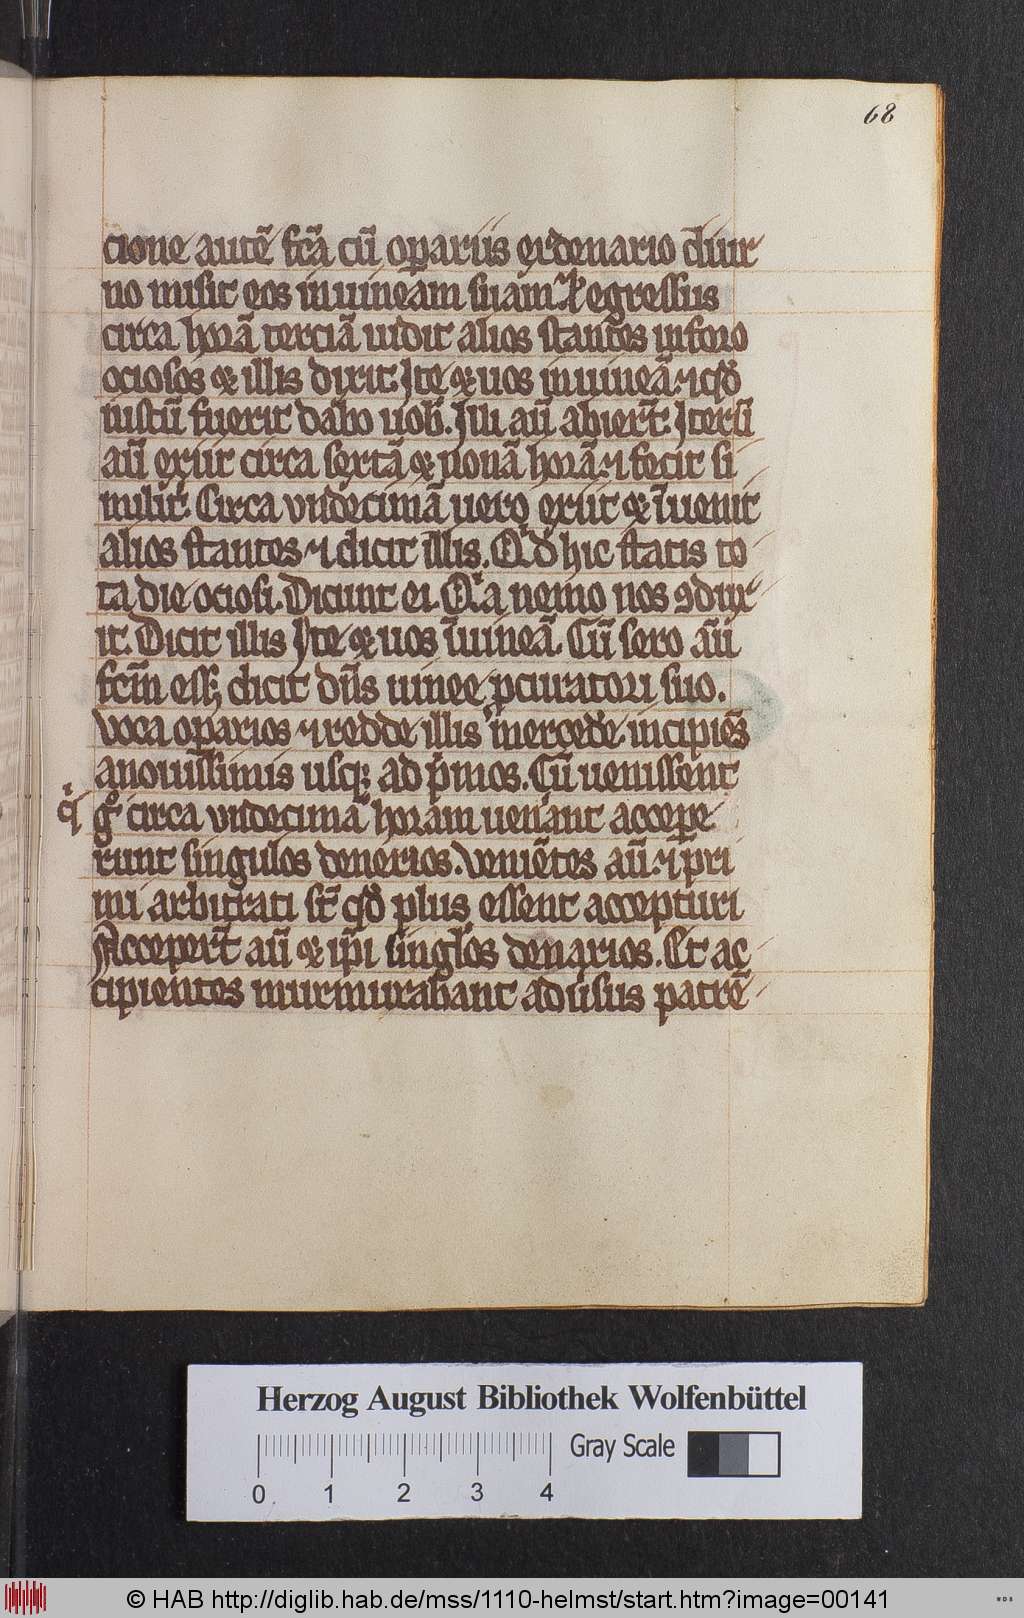 68
cione autē fcā cū opariis exdenario diur
no misit eos inuineam suam. Et egressus
circa horā terciā uidit alios stantes inforo
ociosos et illis dixit. Ite et uos inuineā ⁊ qđ
iustū fuerit dabo uob. Illi aū abierт̄. Itersī
aū exiit circa sextā et nonā horā ⁊ fecit si
milit̄. Circa vndecimā uero exiit et īuenit
alios stantes ⁊ dicit illis. Qͥd hic statis to
ta die ociosi. Dicunt ei. Qͥa nemo nos ꝯdux
it. Dicit illis Ite et uos ī uineā. Cū sero aūi
fcm̄ ess; dicit dn̄s uinee pcuratori suo.
Voca oparios ⁊ redde illis mercedē incipiēs
anouissimis usq; ad pͥmos. Cū uenissent
qͥ
gͦ circa vndecimā horam uenant accepe
runt singulos denerios. Veniētes aū ⁊ pri
mi arbitrati st̄ qđ plus essent accepturi
Acceperт̄ aū et ip̄i singlos denarios. Et ac
cipientes murmurabant aduſus patrē
Herzog August Bibliothek Wolfenbüttel
Gray Scale
0 1 2 3 4
© HAB http://diglib.hab.de/mss/1110-helmst/start.htm?image=00141